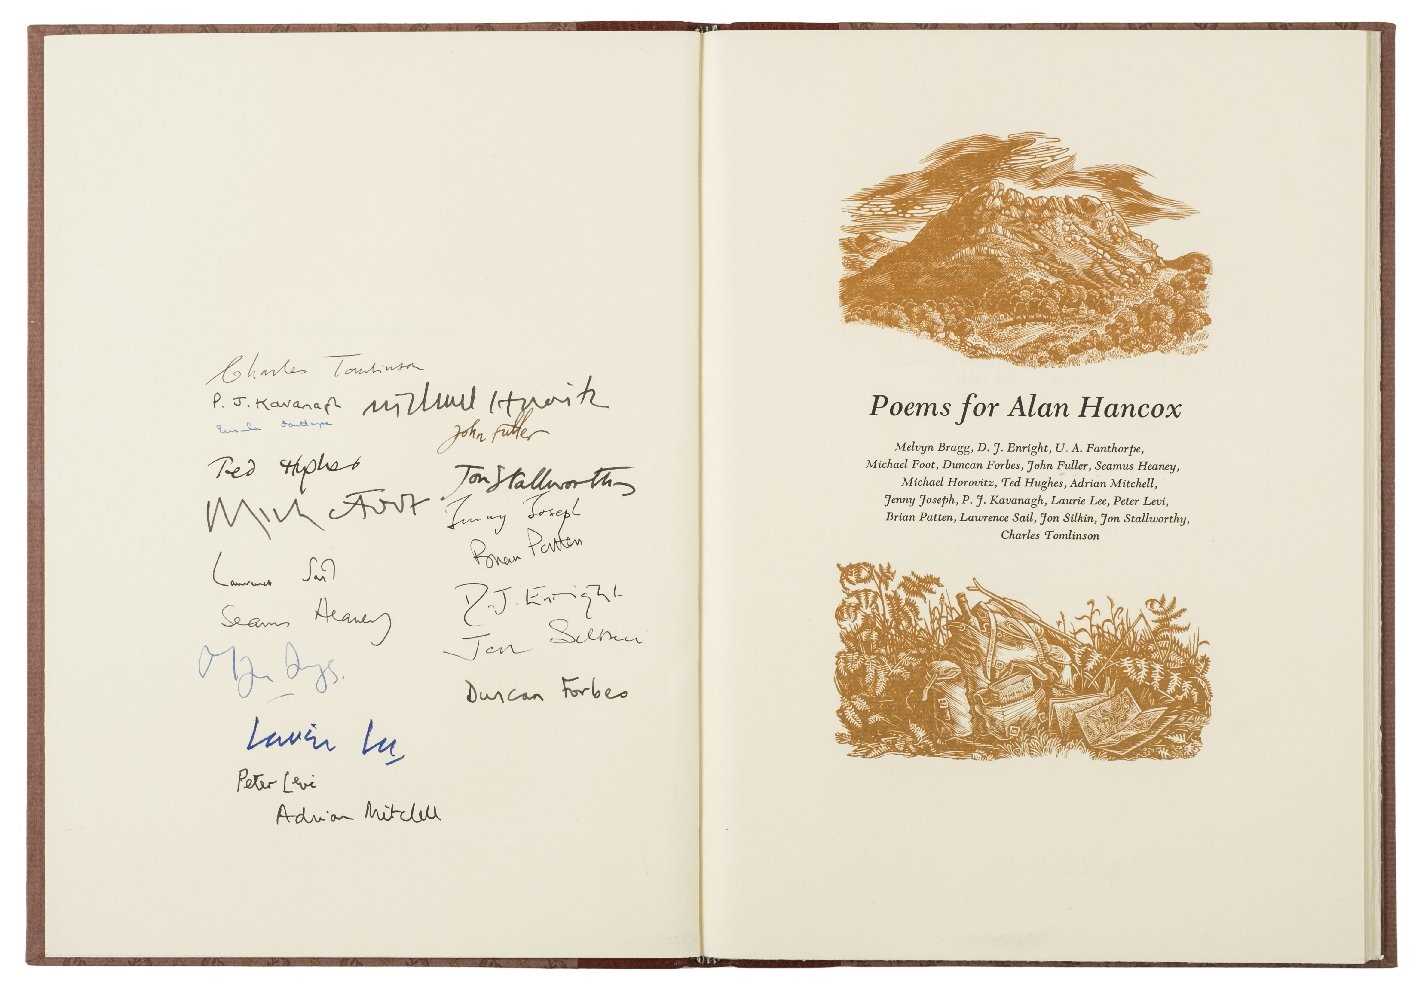 Charles Tomlinson
P. J. Kavanagh
Michael Horovitz
John Fuller
Ted Hughes
Jon Stallworthy
Mich Foot
Jenny Joseph
Brian Patten
Lawrence Sail
D. J. Enright
Seamus Heaney
Jon Silkin
Duncan Forbes
Laurie Lee
Peter Levi
Adrian Mitchell
Poems for Alan Hancox
Melvyn Bragg, D. J. Enright, U. A. Fanthorpe,
Michael Foot, Duncan Forbes, John Fuller, Seamus Heaney,
Michael Horovitz, Ted Hughes, Adrian Mitchell,
Jenny Joseph, P. J. Kavanagh, Laurie Lee, Peter Levi,
Brian Patten, Lawrence Sail, Jon Silkin, Jon Stallworthy,
Charles Tomlinson